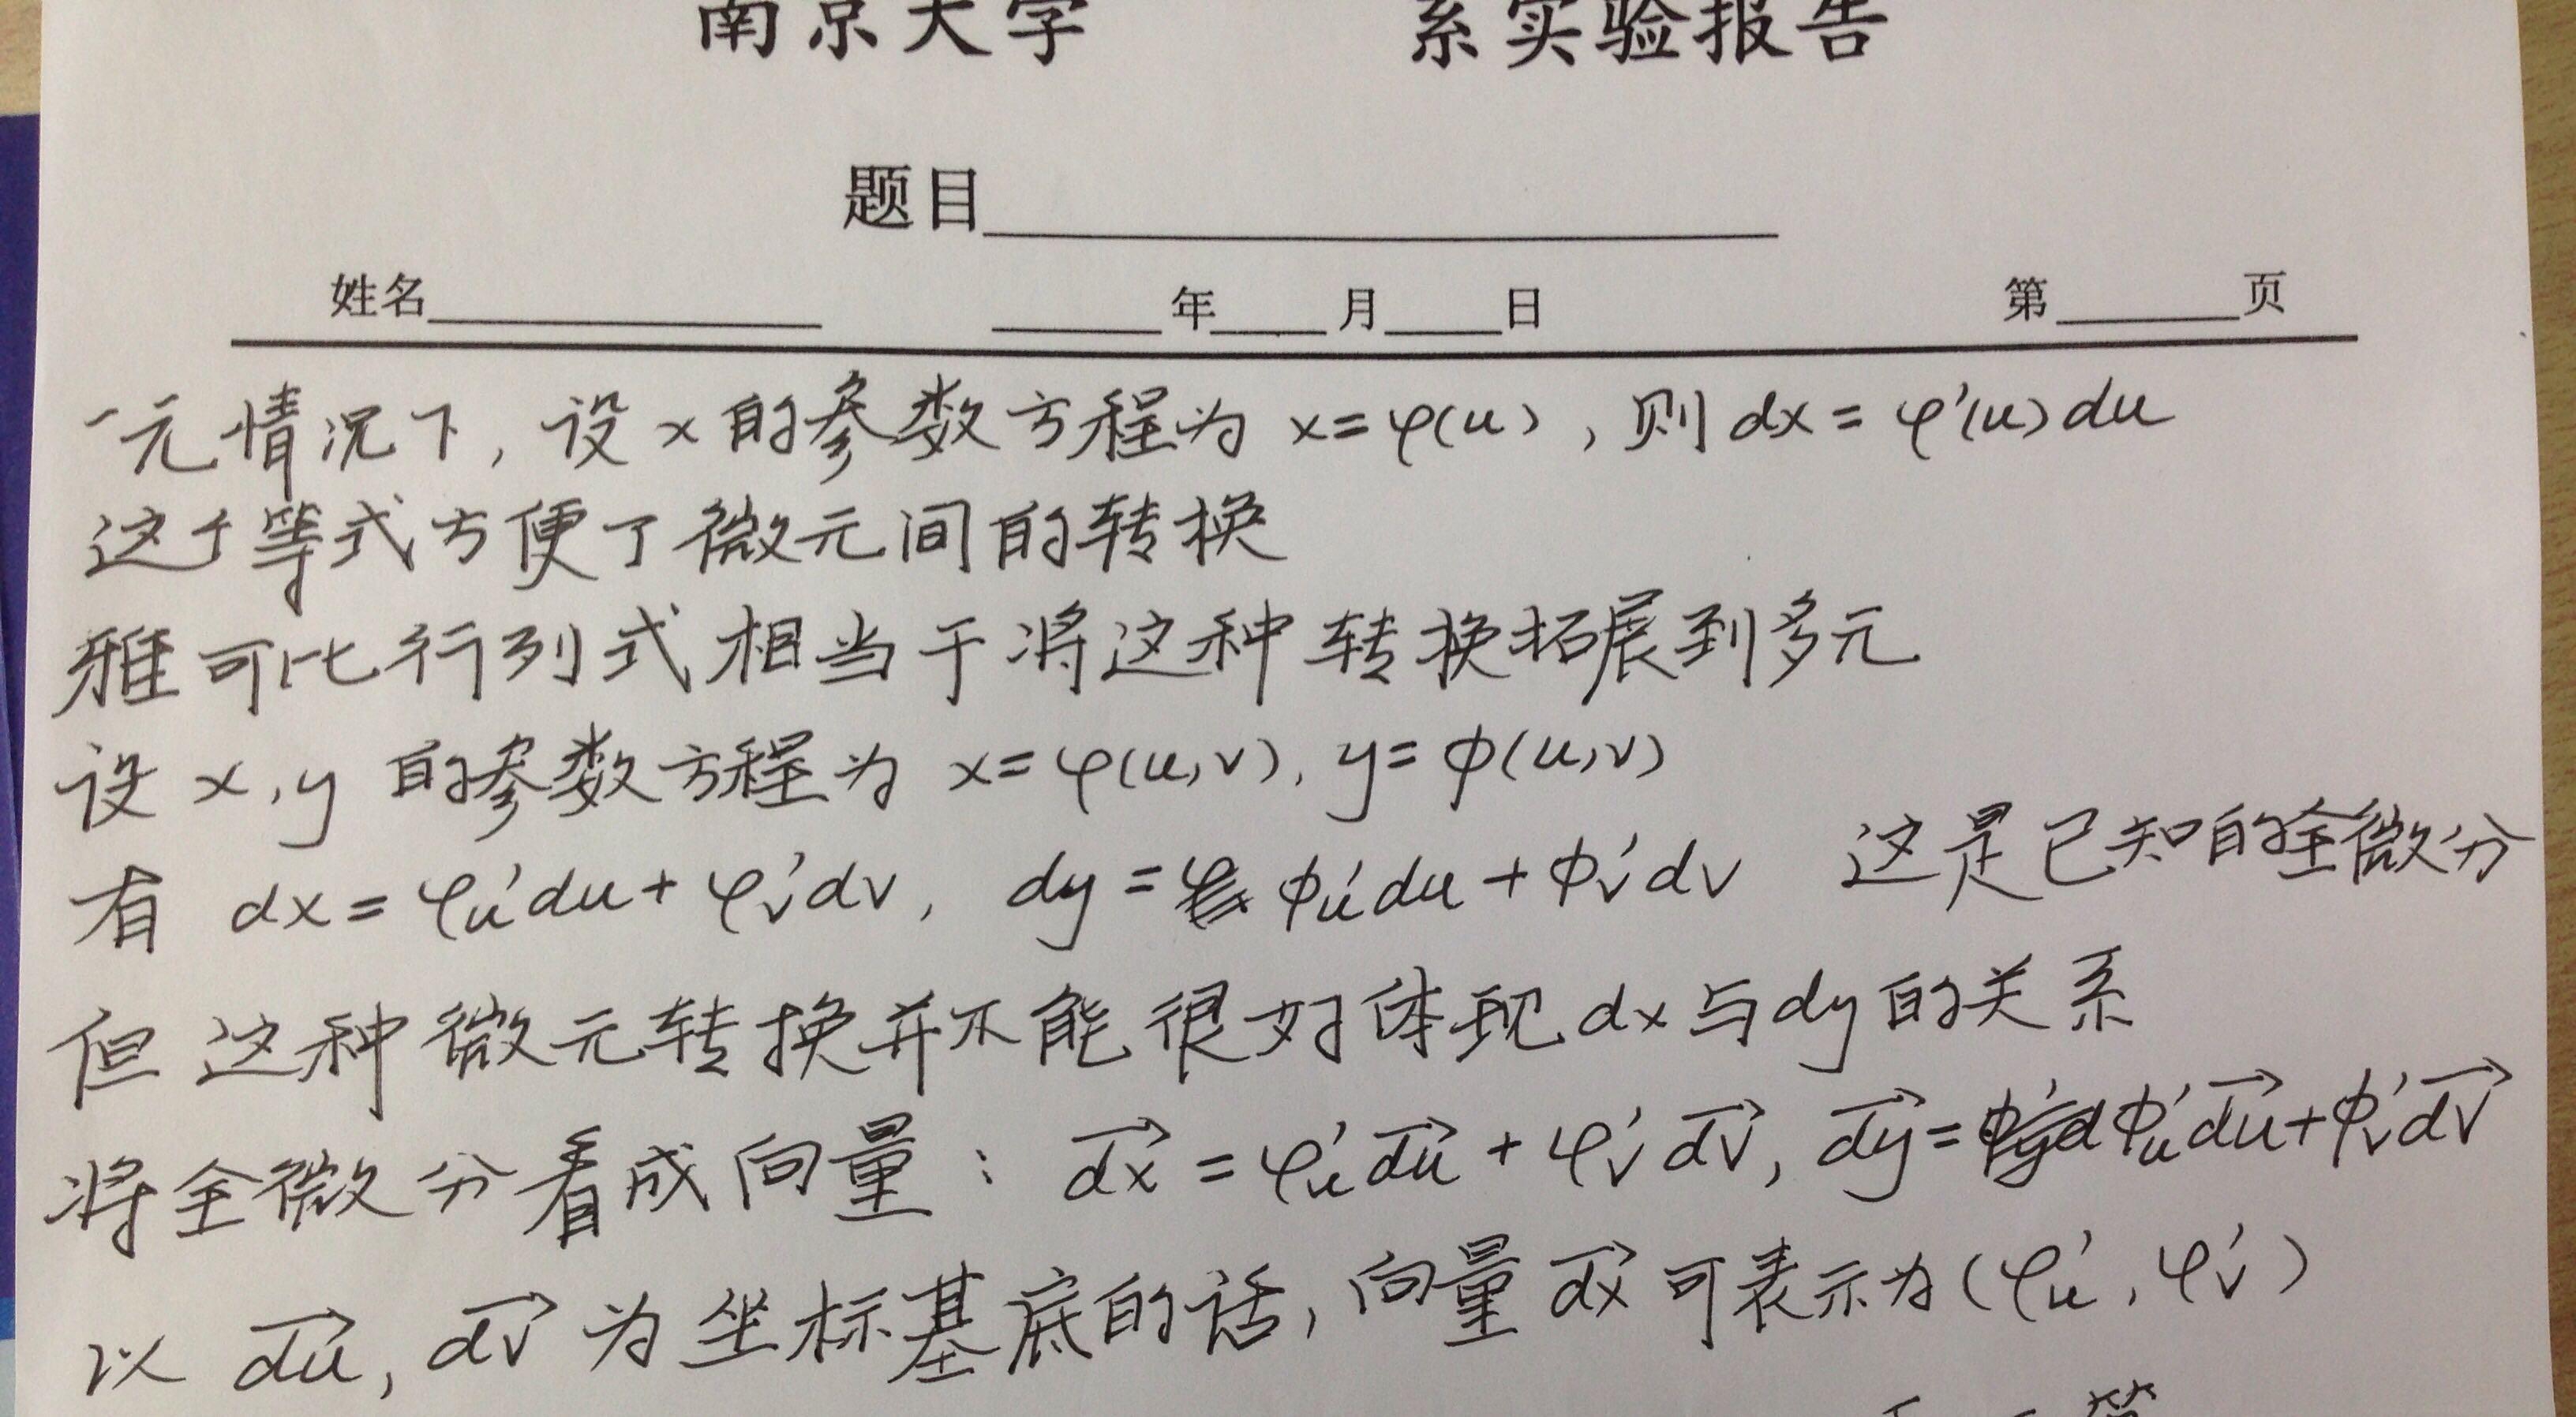 南京大学 系实验报告
题目
姓名 年 月 日 第 页
一元情况下, 设 x 的参数方程为 x=φ(u), 则 dx = φ'(u)du
这个等式方便了微元间的转换
雅可比行列式相当于将这种转换拓展到多元
设 x,y 的参数方程为 x=φ(u,v), y=ϕ(u,v)
有 dx = φu'du + φv'dv, dy = ϕu'du + ϕv'dv 这是已知的全微分
但这种微元转换并不能很好体现 dx 与 dy 的关系
将全微分看成向量: d⃗x = φu' d⃗u + φv' d⃗v, d⃗y = ϕu' d⃗u + ϕv' d⃗v
以 d⃗u, d⃗v 为坐标基底的话, 向量 d⃗x 可表示为 (φu', φv')